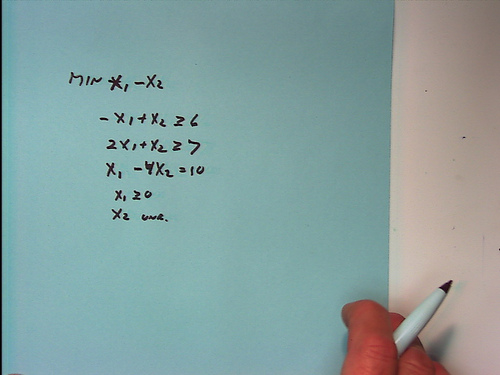 MIN X₁ - X₂
- X₁ + X₂ ≥ 6
2X₁ + X₂ ≥ 7
X₁ - 4X₂ = 10
X₁ ≥ 0
X₂ UNR.